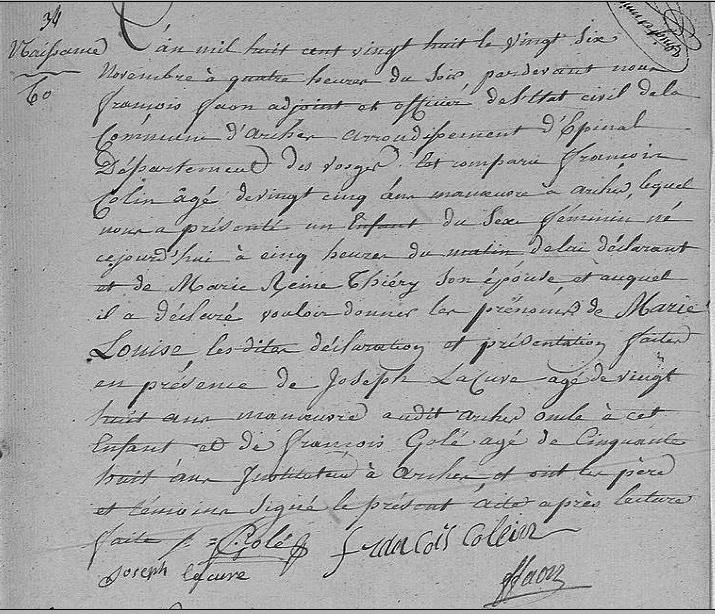 34
Naissance
60
L'an mil huit cent vingt huit le vingt six
Novembre à quatre heures du soir pardevant nous
françois faon adjoint et officier de l'Etat civil de la
Commune d'archer arrondissement d'Epinal
Département des vosges. Est comparu françois
Colin âgé de vingt cinq ans manœuvre à archer, lequel
nous a présenté un Enfant du Sexe féminin né
cejourd'hui à cinq heures du matin de lui déclarant
et de Marie Reine Thiéry Son épouse et auquel
il a déclaré vouloir donner les prénoms de Marie
Louise les dites déclaration et présentation faites
en présence de Joseph LaCuve agé de vingt
huit ans manœuvre audit archer oncle à cet
Enfant et de françois Golé agé de Cinquante
huit ans Instituteur à Archer et ont les père
et témoins signé le présent acte après lecture
faite /. = Golé françois Colein
Joseph lacuve
ffaon